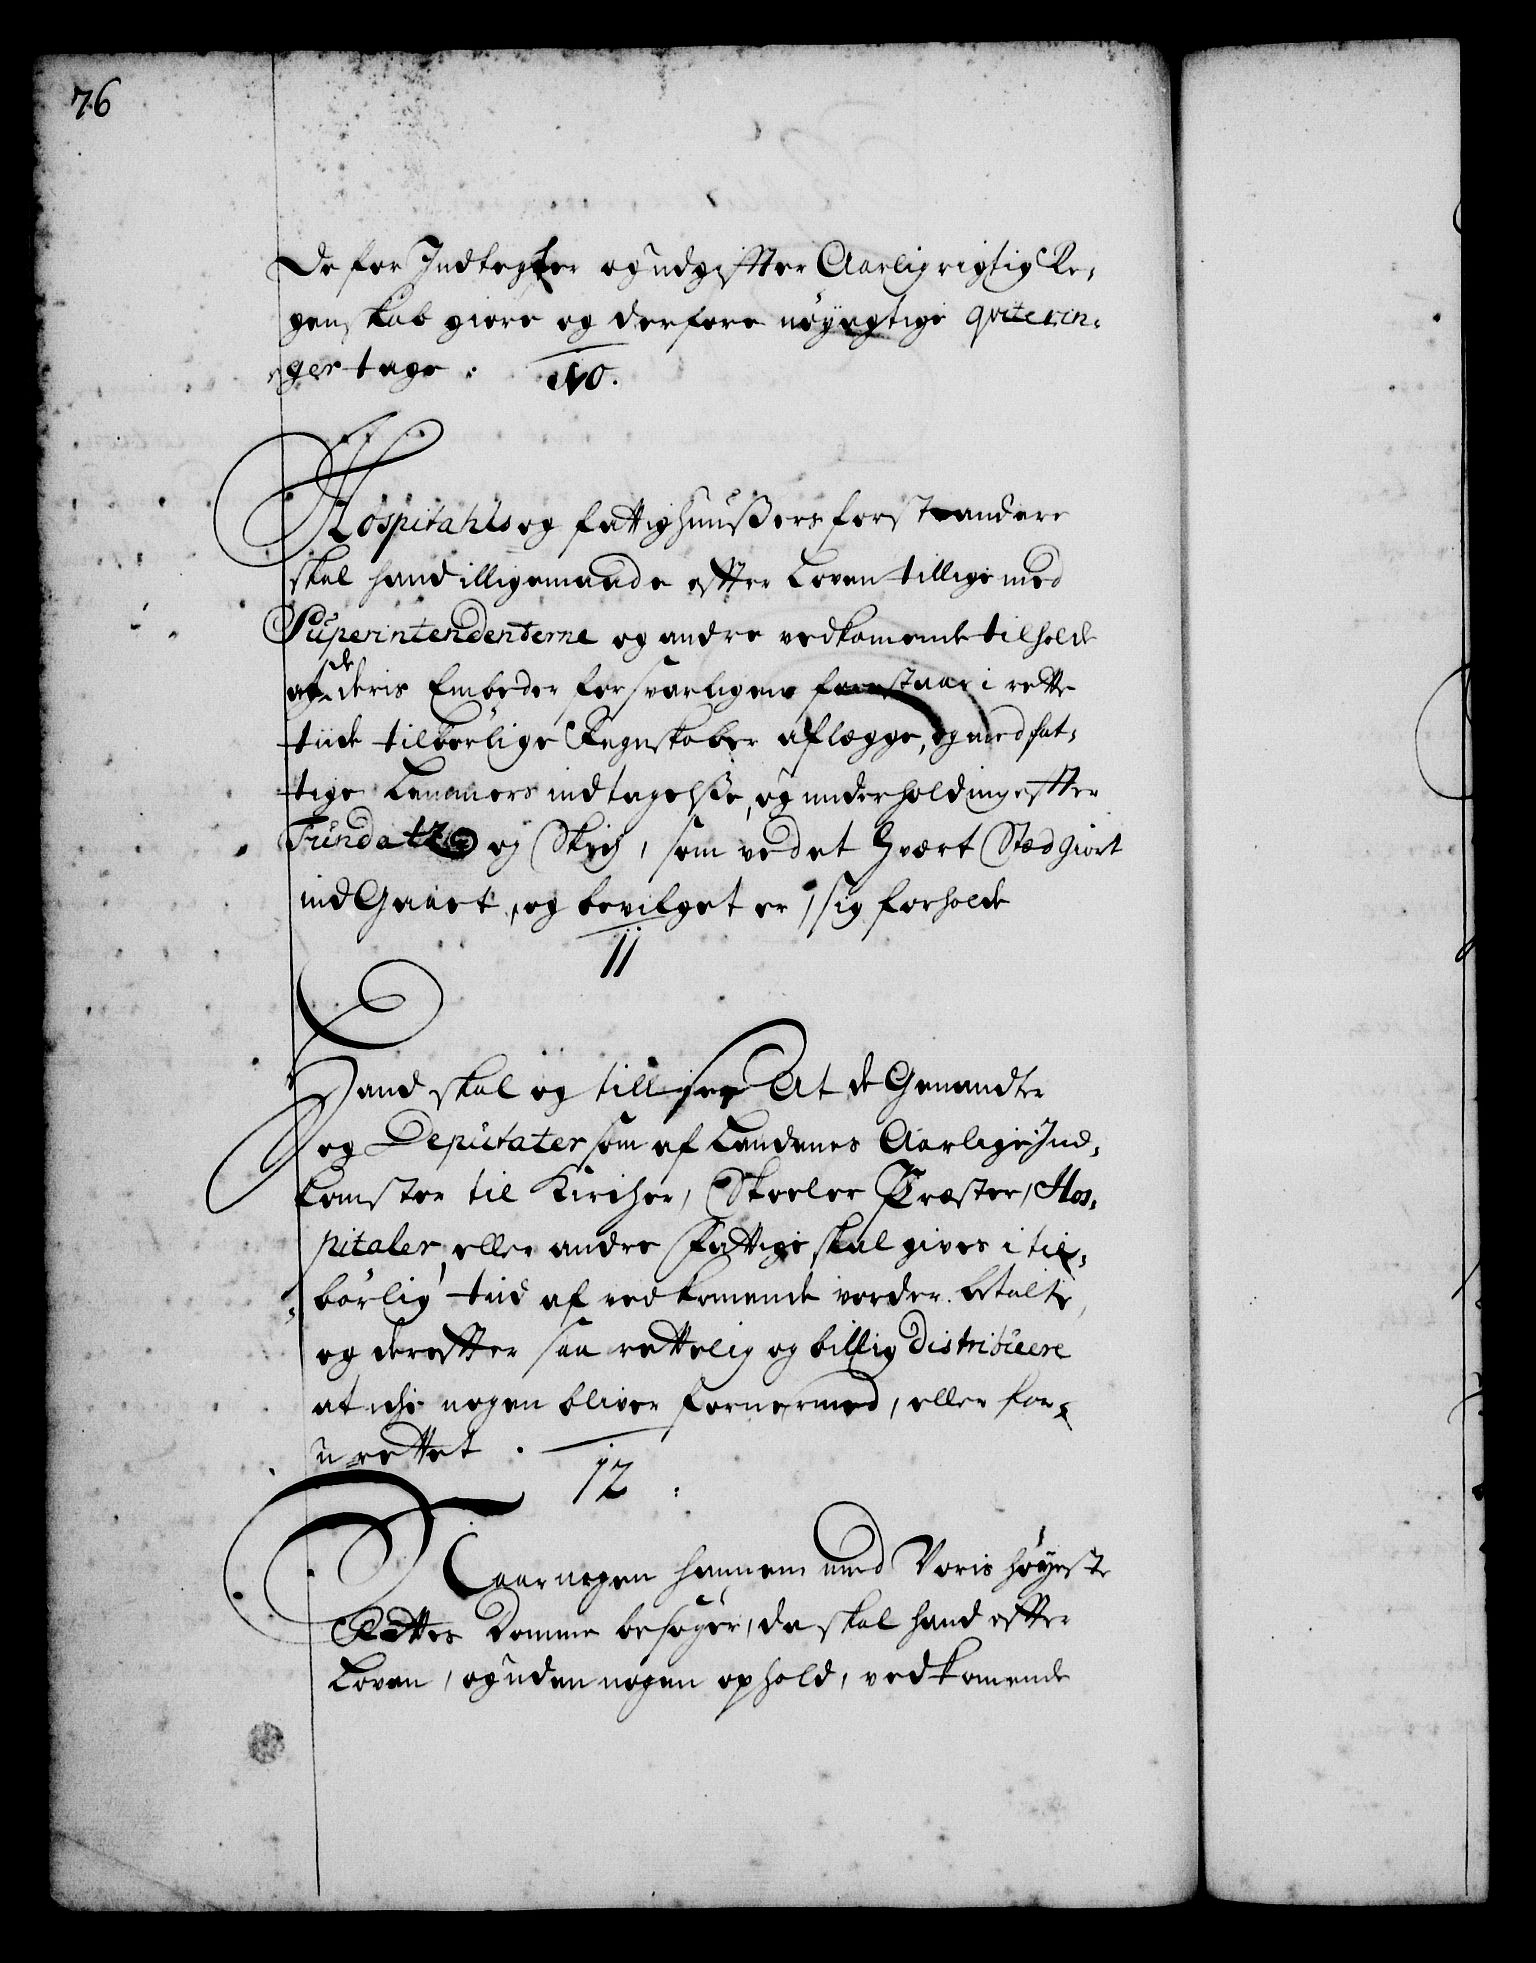 76
De for Indtegter og udgiffter Aarlig rigtig Re,
genskab giøre og derfore nøyagtige qviterin,
ger tage.
10.
Hospitahls og fattighuußers forstandere
skal hand illigemaade effter Loven tillige med
Superintendenterne og andre vedkomende tilholde
at de deris Embeder forsvarligen forestaar i rette
tiide tilbørlige Regnskaber aflegge, og med fat,
tige Lemmers indtagelsse, og underholding effter
Fundatz og Skich, som ved et hvert Sted giort
ind Gaaet, og bevilget er, sig forholde
11
Hand skal og till see At de Genandter
og Deputater som af Landenes Aarlige Ind,
komster til Kircher, Skoeler Præster, Hos,
pitaler, eller andre Fattige skal gives i til,
børlig tiid af vedkomende vorder betalte,
og dereffter saa rettelig og billig distribuere
at iche nogen bliver fornermed, eller for,
urettet.
12
Naar nogen hannem med Voris høyeste
Rettes Domme besøger, da skal hand effter
Loven, og uden nogen ophold, vedkomende